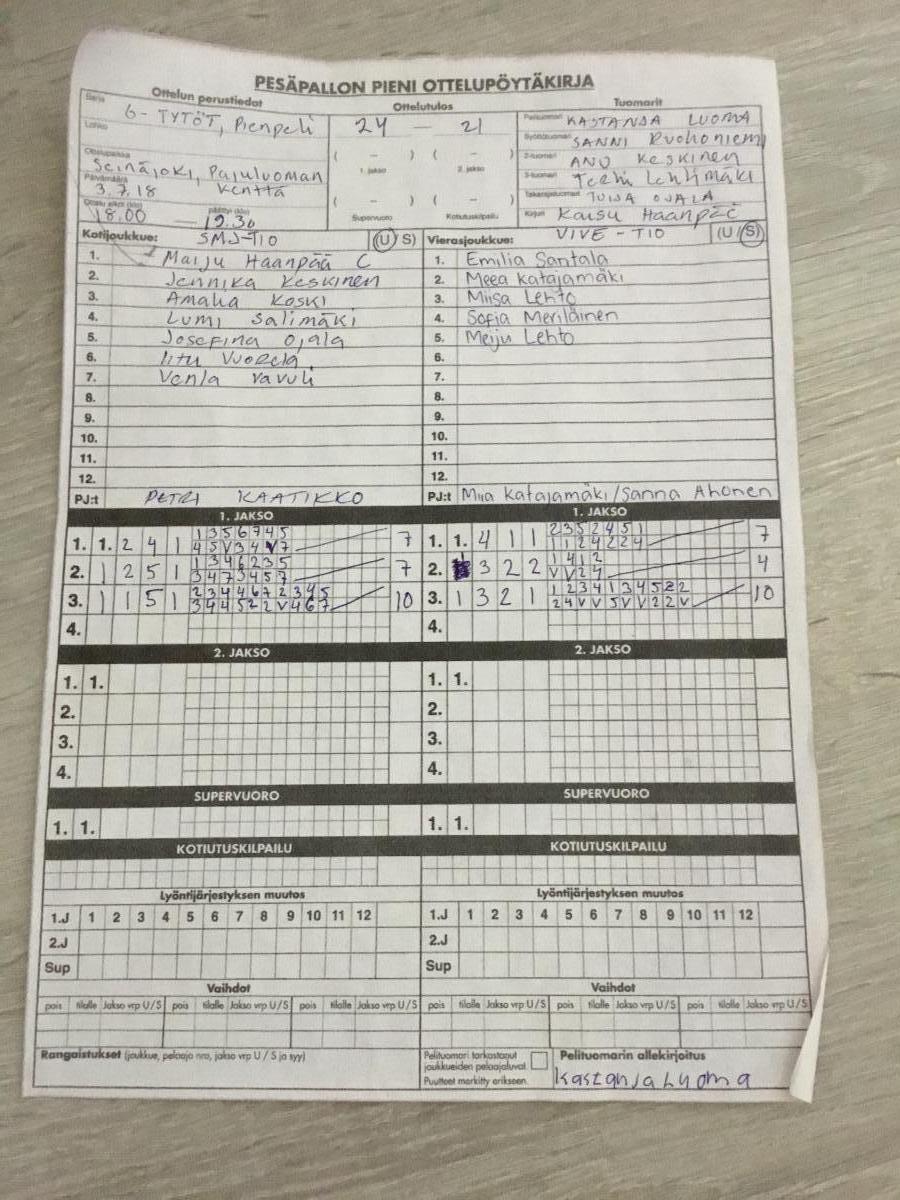 PESÄPALLON PIENI OTTELUPÖYTÄKIRJA
Ottelun perustiedot
Ottelutulos
Tuomarit
Sarja
6-TYTÖT, Pienpeli
Lohko
Ottelupaikka
Seinäjoki, Pajuluoman kenttä
Päivämäärä
3.7.18
Ottelu alkoi (klo) päättyi (klo)
18.00 — 19.30
24 — 21
( – ) ( – )
1. jakso 2. jakso
( – ) ( – )
Supervuoro Kotiutuskilpailu
Pelituomari KASTANJA LUOMA
Syöttötuomari SANNI Ruohoniemi
2-tuomari ANU Keskinen
3-tuomari Teemu Lehtimäki
Takarajatuomari TUIJA OJALA
Kirjuri Kaisu Haanpää
Kotijoukkue: SMJ-TIO (U S)
1. Maiju Haanpää C
2. Jennika Keskinen
3. Amalia Koski
4. Lumi Salimäki
5. Josefina Ojala
6. Iitu Vuorela
7. Venla Vavuli
8.
9.
10.
11.
12.
PJ:t PETRI KAATIKKO
Vierasjoukkue: VIVE - TIO (U S)
1. Emilia Santala
2. Meea Katajamäki
3. Miisa Lehto
4. Sofia Meriläinen
5. Meiju Lehto
6.
7.
8.
9.
10.
11.
12.
PJ:t Miia Katajamäki/Sanna Ahonen
1. JAKSO
1. 1. 2 4 1 1 3 5 6 7 4 5 7
4 5 V 3 4 V 7
2. 1 2 5 1 1 3 4 6 2 3 5 7
3 4 7 3 4 5 7
3. 1 1 5 1 2 3 4 4 6 7 2 3 4 5 10
3 4 4 5 2 2 V 4 6 7
4.
1. JAKSO
1. 1. 4 1 1 2 3 5 2 4 5 1 7
1 1 2 4 2 2 4
2. 3 2 2 1 4 1 2 4
V V 2 4
3. 1 3 2 1 1 2 3 4 1 3 4 5 2 2 10
2 4 V V 5 V V 2 2 V
4.
2. JAKSO
1. 1.
2.
3.
4.
2. JAKSO
1. 1.
2.
3.
4.
SUPERVUORO
1. 1.
SUPERVUORO
1. 1.
KOTIUTUSKILPAILU
KOTIUTUSKILPAILU
Lyöntijärjestyksen muutos
1.J 1 2 3 4 5 6 7 8 9 10 11 12
2.J
Sup
Lyöntijärjestyksen muutos
1.J 1 2 3 4 5 6 7 8 9 10 11 12
2.J
Sup
Vaihdot
pois tilalle Jakso vrp U/S pois tilalle Jakso vrp U/S pois tilalle Jakso vrp U/S
Vaihdot
pois tilalle Jakso vrp U/S pois tilalle Jakso vrp U/S pois tilalle Jakso vrp U/S
Rangaistukset (joukkue, pelaaja nro, jakso vrp U / S ja syy)
Pelituomari tarkastanut
joukkueiden pelaajaluvat
Puutteet merkitty erikseen.
Pelituomarin allekirjoitus
Kastanja Luoma